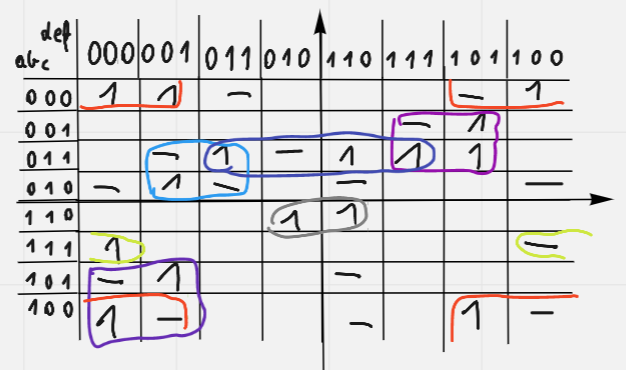 def
abc 000 001 011 010 110 111 101 100
000 1 1 – – 1
001 – 1
011 – 1 – 1 1 1
010 – 1 – – –
110 1 1
111 1 –
101 – 1 –
100 1 – – 1 –